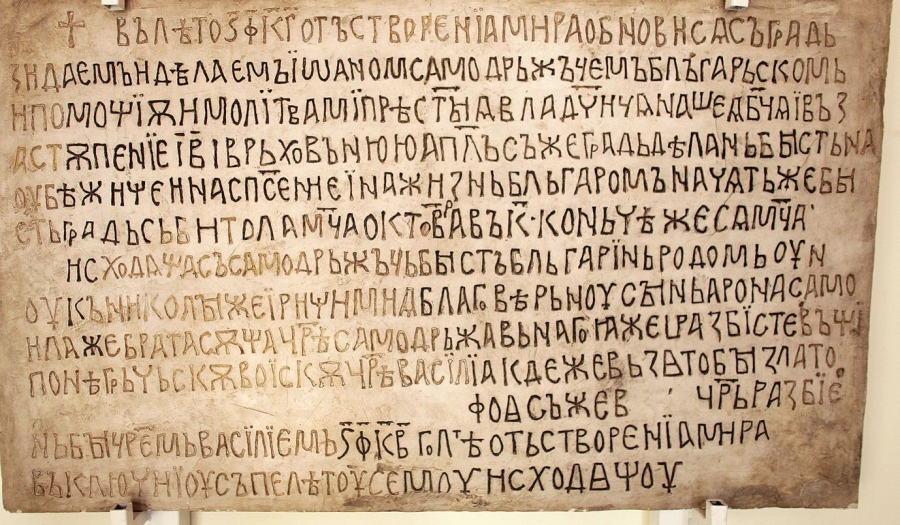 † ВЪЛѢТОЅФКГОТЪСТВОРЕНЇАМИРАОБНОВИСАСЪГРАДЬ
ЗИДАЕМЪИДѢЛАЕМЪЇѠАНОМСАМОДРЬЖЪЧЕМЪБЛЪГАРЬСКОМЬ
ИПОМОЩЇѪИМОЛЇТВАМЇПРѢСТЫАВЛАДЧИЧАНАШЕАБЧАЇВЪЗ
АСТѪПЕНЇЕІВІВРЬХОВЪНЮЮАПЛЪСЪЖЕГРАДЬДѢЛАНЬББЫСТЬНА
ОУБѢЖИЩЕИНАСПСЕНИЕЇНАЖИЗНЬБЛЬГАРОМЪНАЧАТЬЖЕБЫ
СТЬГРАДЬСЬБИТОЛАМЦАОКТОВРАВЪК·КОНЬЧѢЖЕСАМЦА
ИСХОДАЩАСЪСАМОДРЪЖЪЧЬББЫСТЪБЛЬГАРЇНЬРОДОМЬОУН
ОУКЪНИКОЛЫЖЕЇРИѰИМИДАБЛАГОВѢРЬНОУСЫНЬАРОНАСАМО
ИЛАЖЕБРАТАСѪЩАЦРѢСАМОДРЬЖАВЬНАГОꙖЖЕІРАЗБЇСТЕВЪЩІ
ПОНѢГРЬЧЬСКѪВОЇСКѪЦРѢВАСЇЛІАКДЕЖЕВЬЗѦТОБЫЗЛАТО
ФОѦСЪЖЕВ ЦРЬРАЗБЇЕ
НЬБЫЦРЕМЬВАСІЛІЕМЬЅФКВГОЛТѢОТЬСТВОРЕНЇАМИРА
ВЪКЛЮЧНЇОУСЪПЕЛѢТОУСЕМОУИСХОДѦЩОУ